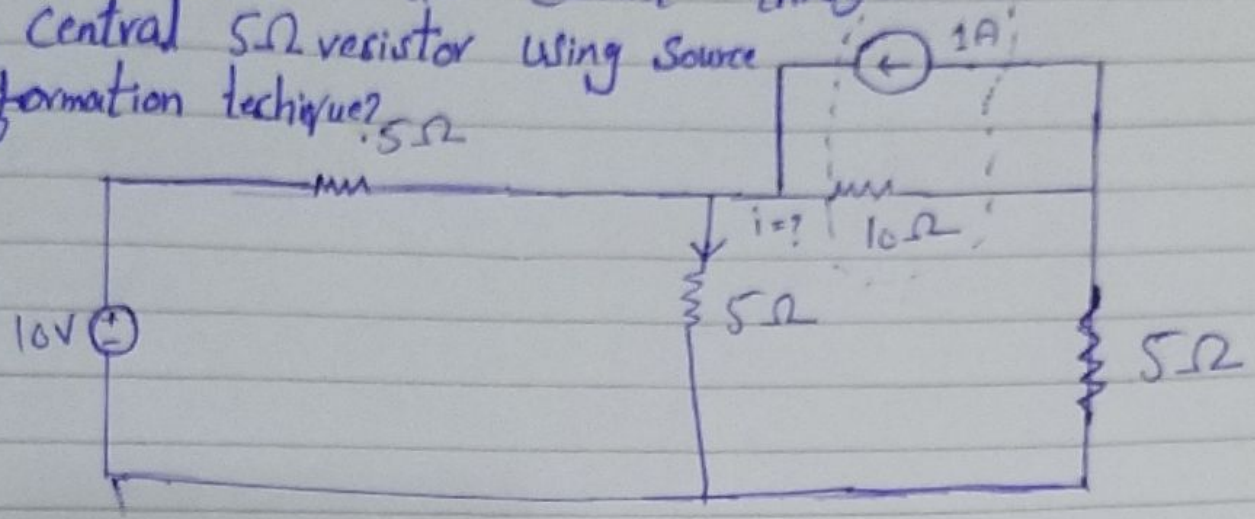 Central 5Ω resistor using Source
formation techique?
5Ω
1A
i=?
10Ω
5Ω
10V
5Ω